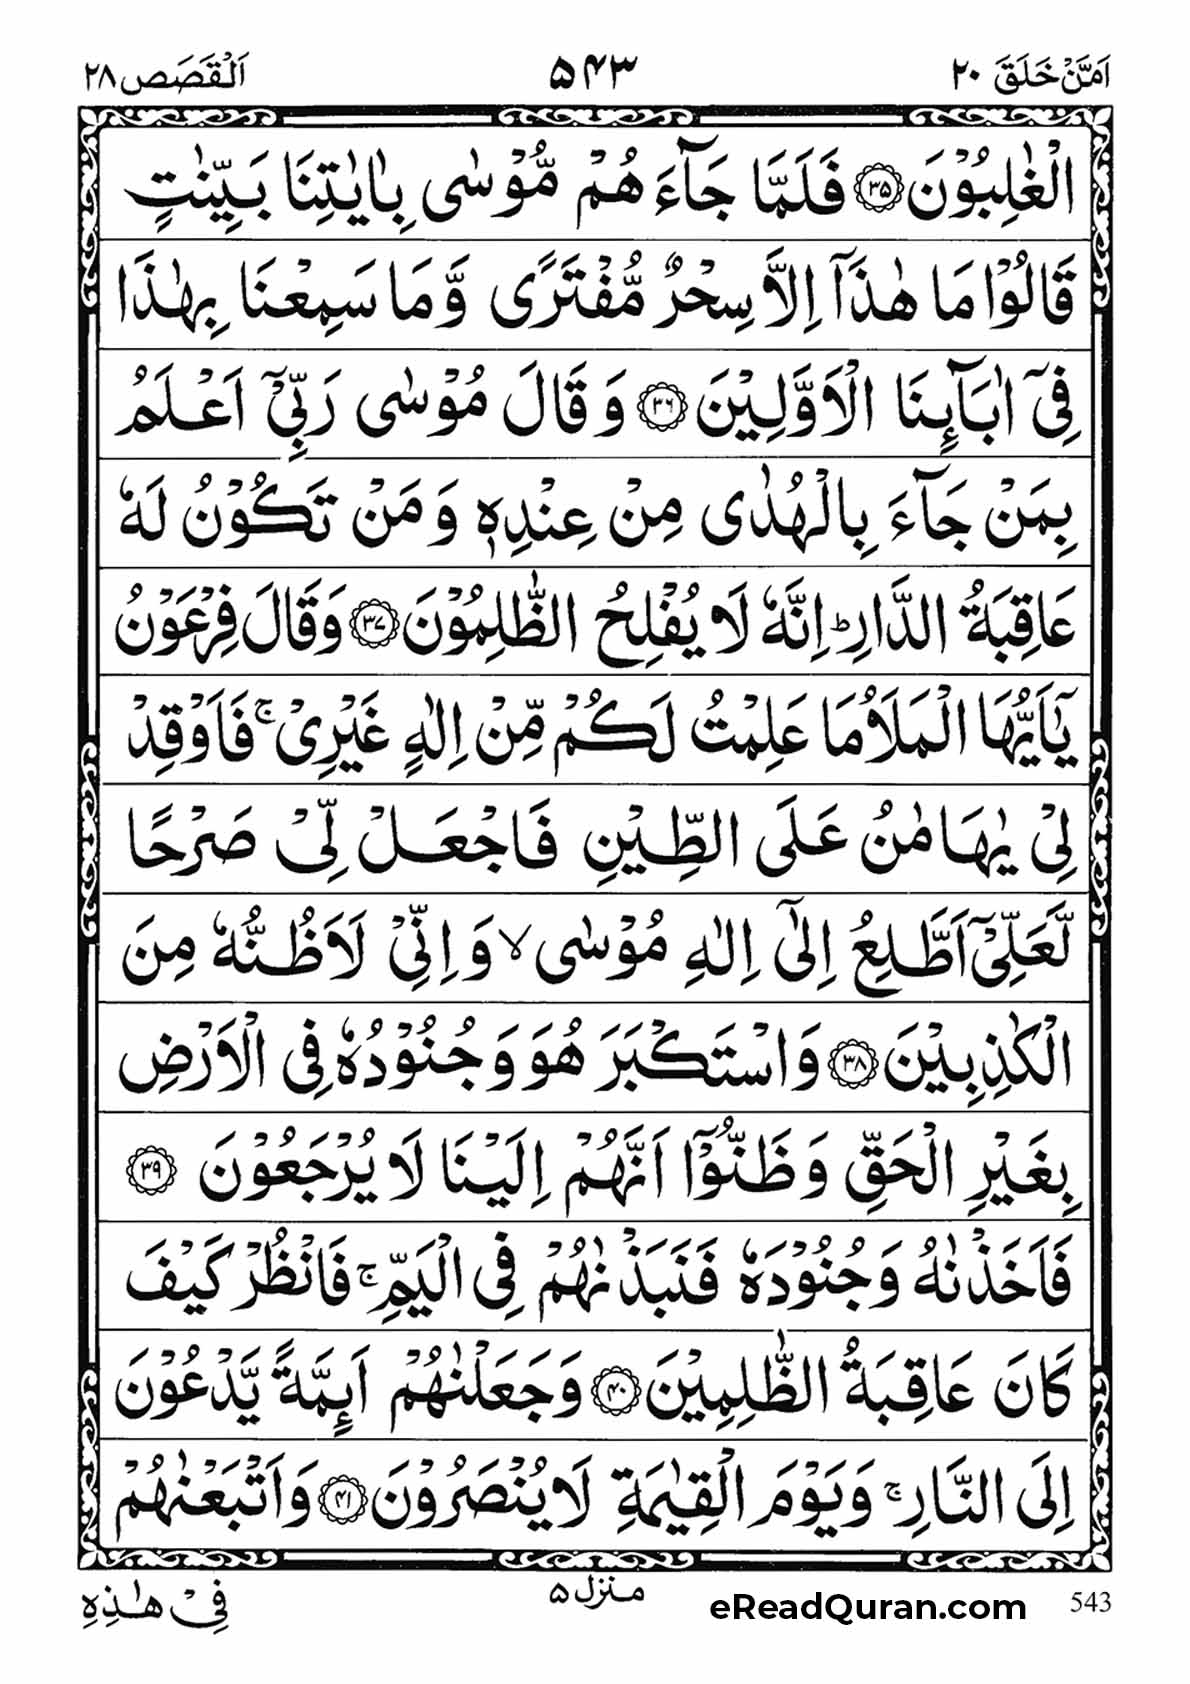 اَمَّنْ خَلَقَ ۲۰ ۵۴۳ اَلْقَصَص ۲۸
الْغٰلِبُوْنَ ۳۵ فَلَمَّا جَآءَ هُمْ مُّوْسٰى بِاٰيٰتِنَا بَيِّنٰتٍ
قَالُوْا مَا هٰذَآ اِلَّا سِحْرٌ مُّفْتَرًى وَّمَا سَمِعْنَا بِهٰذَا
فِىْٓ اٰبَآئِنَا الْاَوَّلِيْنَ ۳۶ وَقَالَ مُوْسٰى رَبِّىْٓ اَعْلَمُ
بِمَنْ جَآءَ بِالْهُدٰى مِنْ عِنْدِهٖ وَمَنْ تَكُوْنُ لَهٗ
عَاقِبَةُ الدَّارِ ؕ اِنَّهٗ لَا يُفْلِحُ الظّٰلِمُوْنَ ۳۷ وَقَالَ فِرْعَوْنُ
يٰٓاَيُّهَا الْمَلَاُ مَا عَلِمْتُ لَكُمْ مِّنْ اِلٰهٍ غَيْرِىْ ۚ فَاَوْقِدْ
لِىْ يٰهَامٰنُ عَلَى الطِّيْنِ فَاجْعَلْ لِّىْ صَرْحًا
لَّعَلِّىْٓ اَطَّلِعُ اِلٰٓى اِلٰهِ مُوْسٰى ۙ وَاِنِّىْ لَاَظُنُّهٗ مِنَ
الْكٰذِبِيْنَ ۳۸ وَاسْتَكْبَرَ هُوَ وَجُنُوْدُهٗ فِى الْاَرْضِ
بِغَيْرِ الْحَقِّ وَظَنُّوْٓا اَنَّهُمْ اِلَيْنَا لَا يُرْجَعُوْنَ ۳۹
فَاَخَذْنٰهُ وَجُنُوْدَهٗ فَنَبَذْنٰهُمْ فِى الْيَمِّ ۚ فَانْظُرْ كَيْفَ
كَانَ عَاقِبَةُ الظّٰلِمِيْنَ ۴۰ وَجَعَلْنٰهُمْ اَئِمَّةً يَّدْعُوْنَ
اِلَى النَّارِ ۚ وَيَوْمَ الْقِيٰمَةِ لَا يُنْصَرُوْنَ ۴۱ وَاَتْبَعْنٰهُمْ
543 eReadQuran.com منزل ۵ فِىْ هٰذِهِ